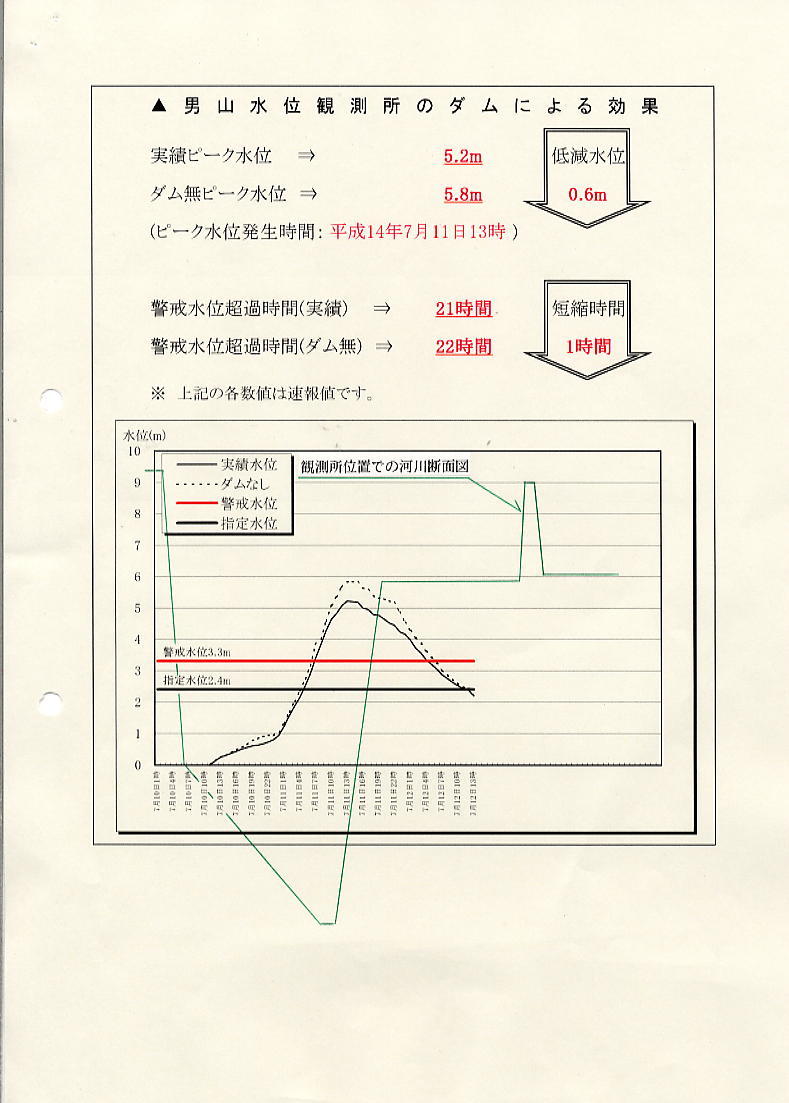 ▲男山水位観測所のダムによる効果
実績ピーク水位 ⇒ 5.2m
ダム無ピーク水位 ⇒ 5.8m
低減水位
0.6m
(ピーク水位発生時間: 平成14年7月11日13時 )
警戒水位超過時間(実績) ⇒ 21時間
警戒水位超過時間(ダム無) ⇒ 22時間
短縮時間
1時間
※ 上記の各数値は速報値です。
水位(m)
10
9
8
7
6
5
4
3
2
1
0
実績水位
ダムなし
警戒水位
指定水位
観測所位置での河川断面図
警戒水位3.3m
指定水位2.4m
7月10日1時
7月10日4時
7月10日7時
7月10日10時
7月10日13時
7月10日16時
7月10日19時
7月10日22時
7月11日1時
7月11日4時
7月11日7時
7月11日10時
7月11日13時
7月11日16時
7月11日19時
7月11日22時
7月12日1時
7月12日4時
7月12日7時
7月12日10時
7月12日13時